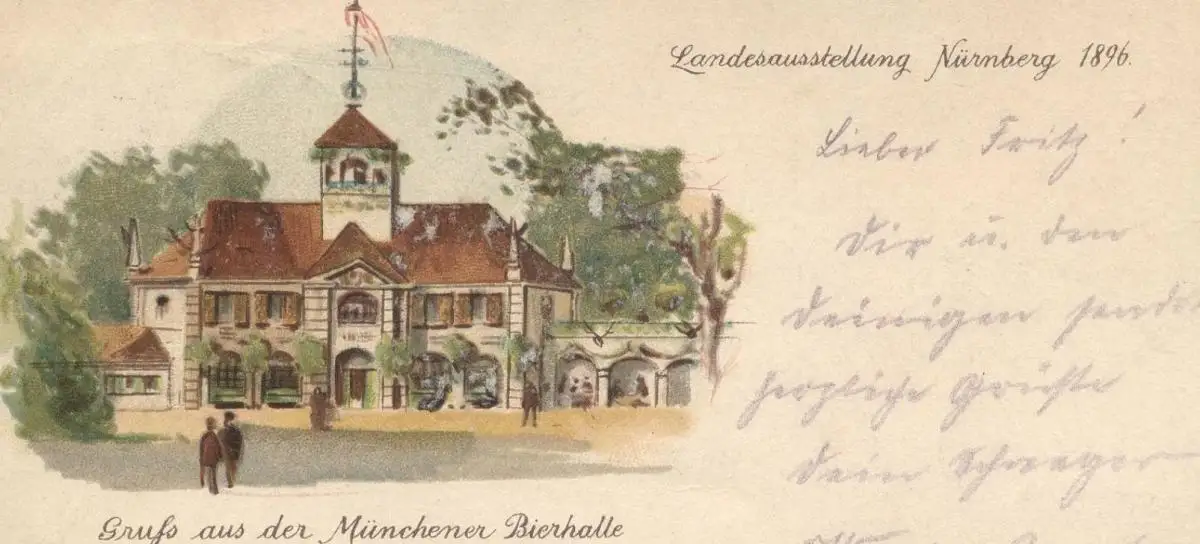 Landesausstellung Nürnberg 1896.
Lieber Fritz!
Dir u. den
Deinigen sende
herzliche Grüße
Dein Schwager
Gruß aus der Münchener Bierhalle